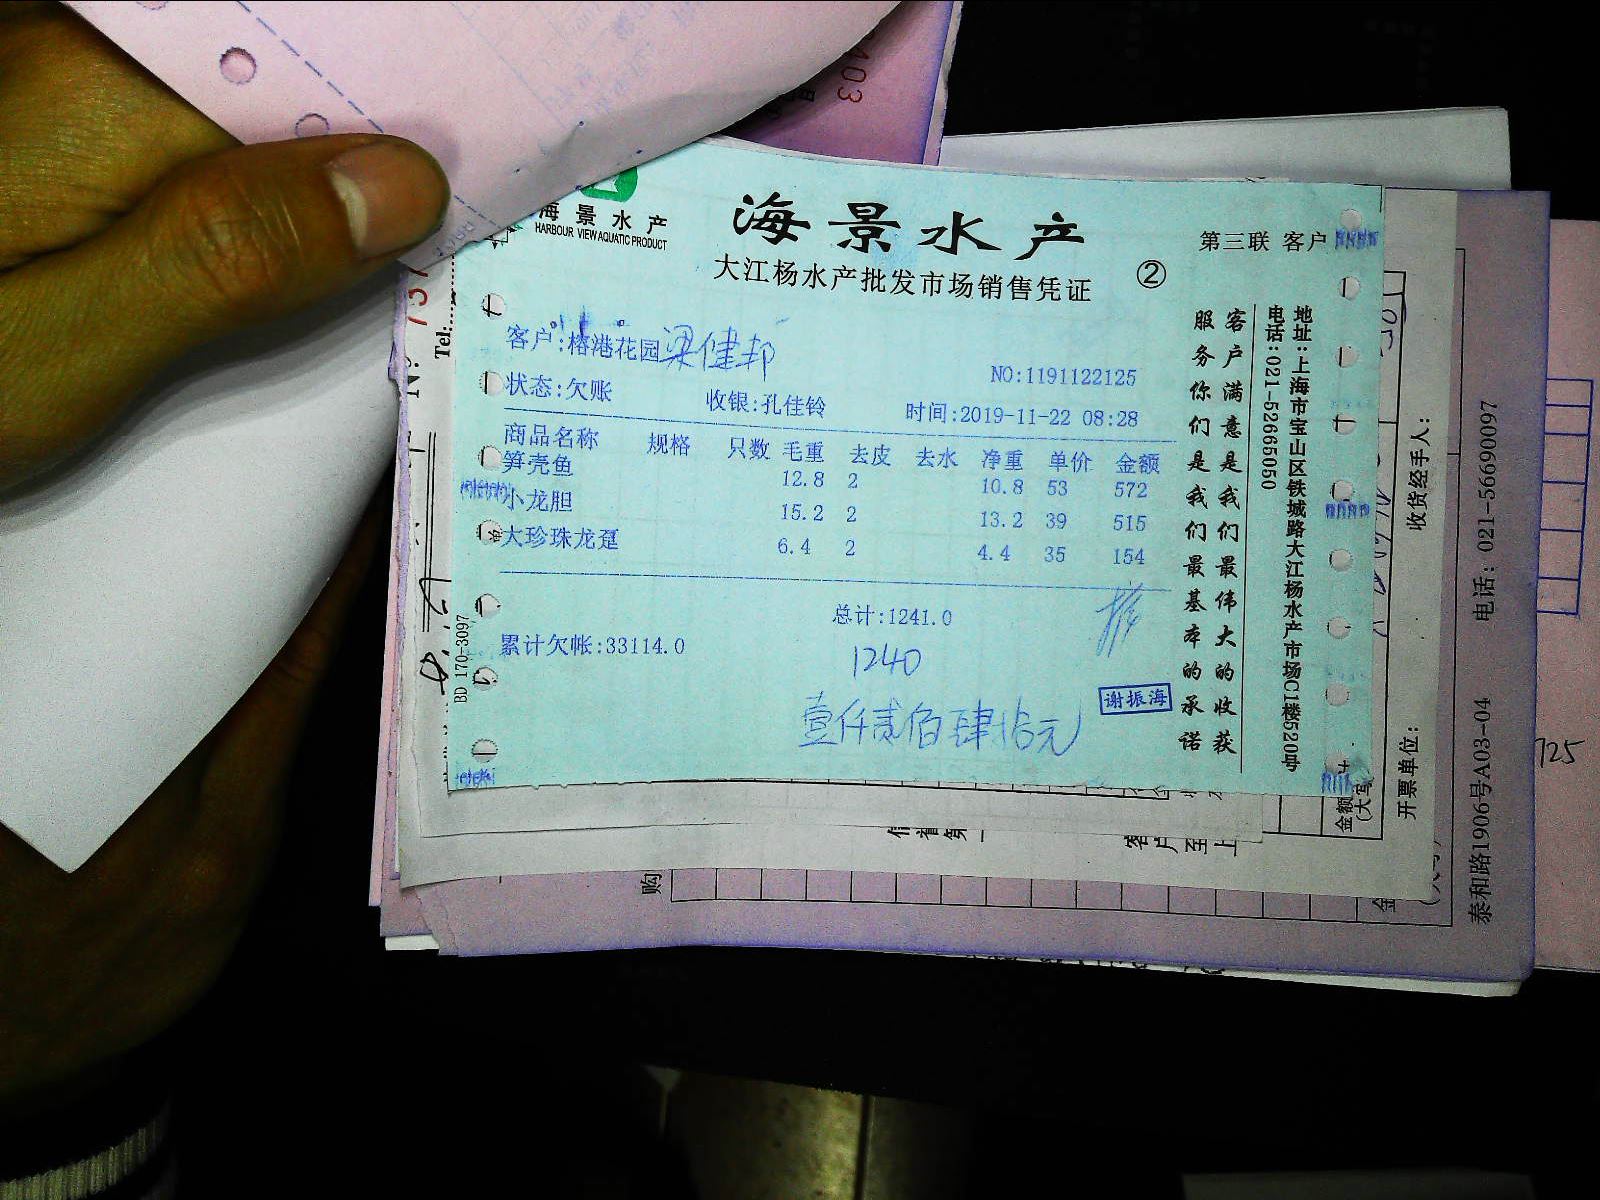 海景水产
HARBOUR VIEW AQUATIC PRODUCT
海景水产
大江杨水产批发市场销售凭证
②
第三联 客户
客户:椿港花园梁健邦
NO:1191122125
状态:欠账 收银:孔佳铃 时间:2019-11-22 08:28
商品名称 规格 只数 毛重 去皮 去水 净重 单价 金额
笋壳鱼 12.8 2 10.8 53 572
小龙胆 15.2 2 13.2 39 515
大珍珠龙趸 6.4 2 4.4 35 154
总计:1241.0
累计欠帐:33114.0
1240
壹仟贰佰肆拾元
谢振海
客户满意是我们最伟大的收获
服务你们是我们最基本的承诺
地址:上海市宝山区铁城路大江杨水产市场C1楼520号
电话:021-52665050
BD 170-3097
Tel:
收货经手人:
开票单位:
金额
(大写
泰和路1906号A03-04 电话: 021-56690097
125
购
客户至上